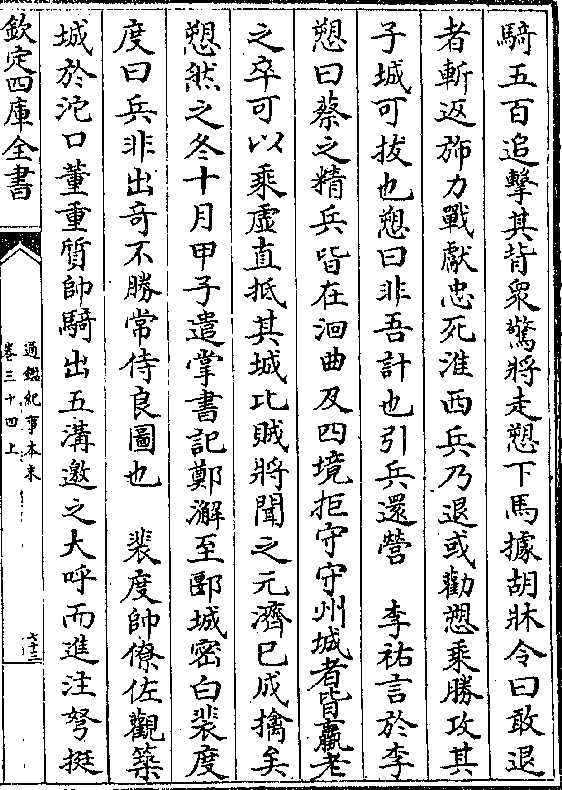 騎五百追擊其背衆驚將走愬下馬據胡牀令曰敢退
者斬返斾力戰獻忠死淮西兵乃退或勸愬乘勝攻其
子城可拔也愬曰非吾計也引兵還營　李祐言於李
愬曰蔡之精兵皆在洄曲及四境拒守守州城者皆羸老
之卒可以乘虛直抵其城比賊將聞之元濟已成擒矣
愬然之冬十月甲子遣掌書記鄭澥至郾城密白裴度
度曰兵非出奇不勝常侍良圖也　裴度帥僚佐觀築
城於沱口董重質帥騎出五溝邀之大呼而進注弩挺
欽定四庫全書
通鑑紀事本末
卷三十四上
七十三